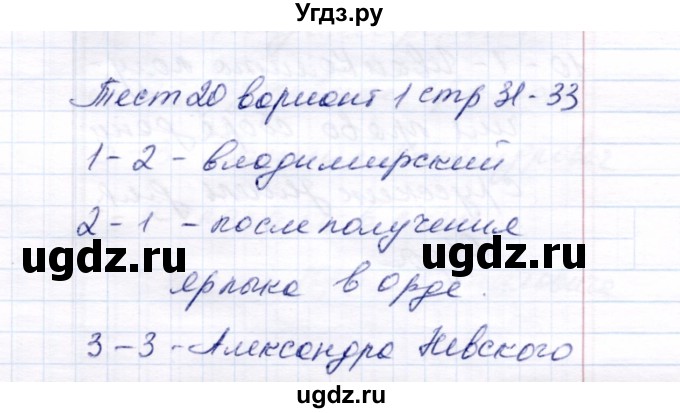 Угдз.ру
Тест 20 вариант 1 стр 31-33
1-2 - владимирский
2-1 - после получения
ugdz.ru ugdz.ru
ярлыка в орде.
3-3 - Александра Невского
ugdz.ru